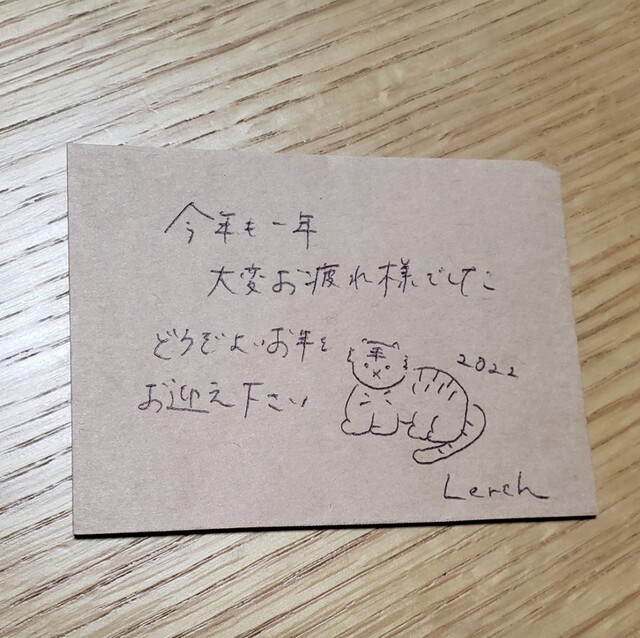 今年も一年
大変お疲れ様でした
どうぞよいお年を
お迎え下さい
2022
Lerch